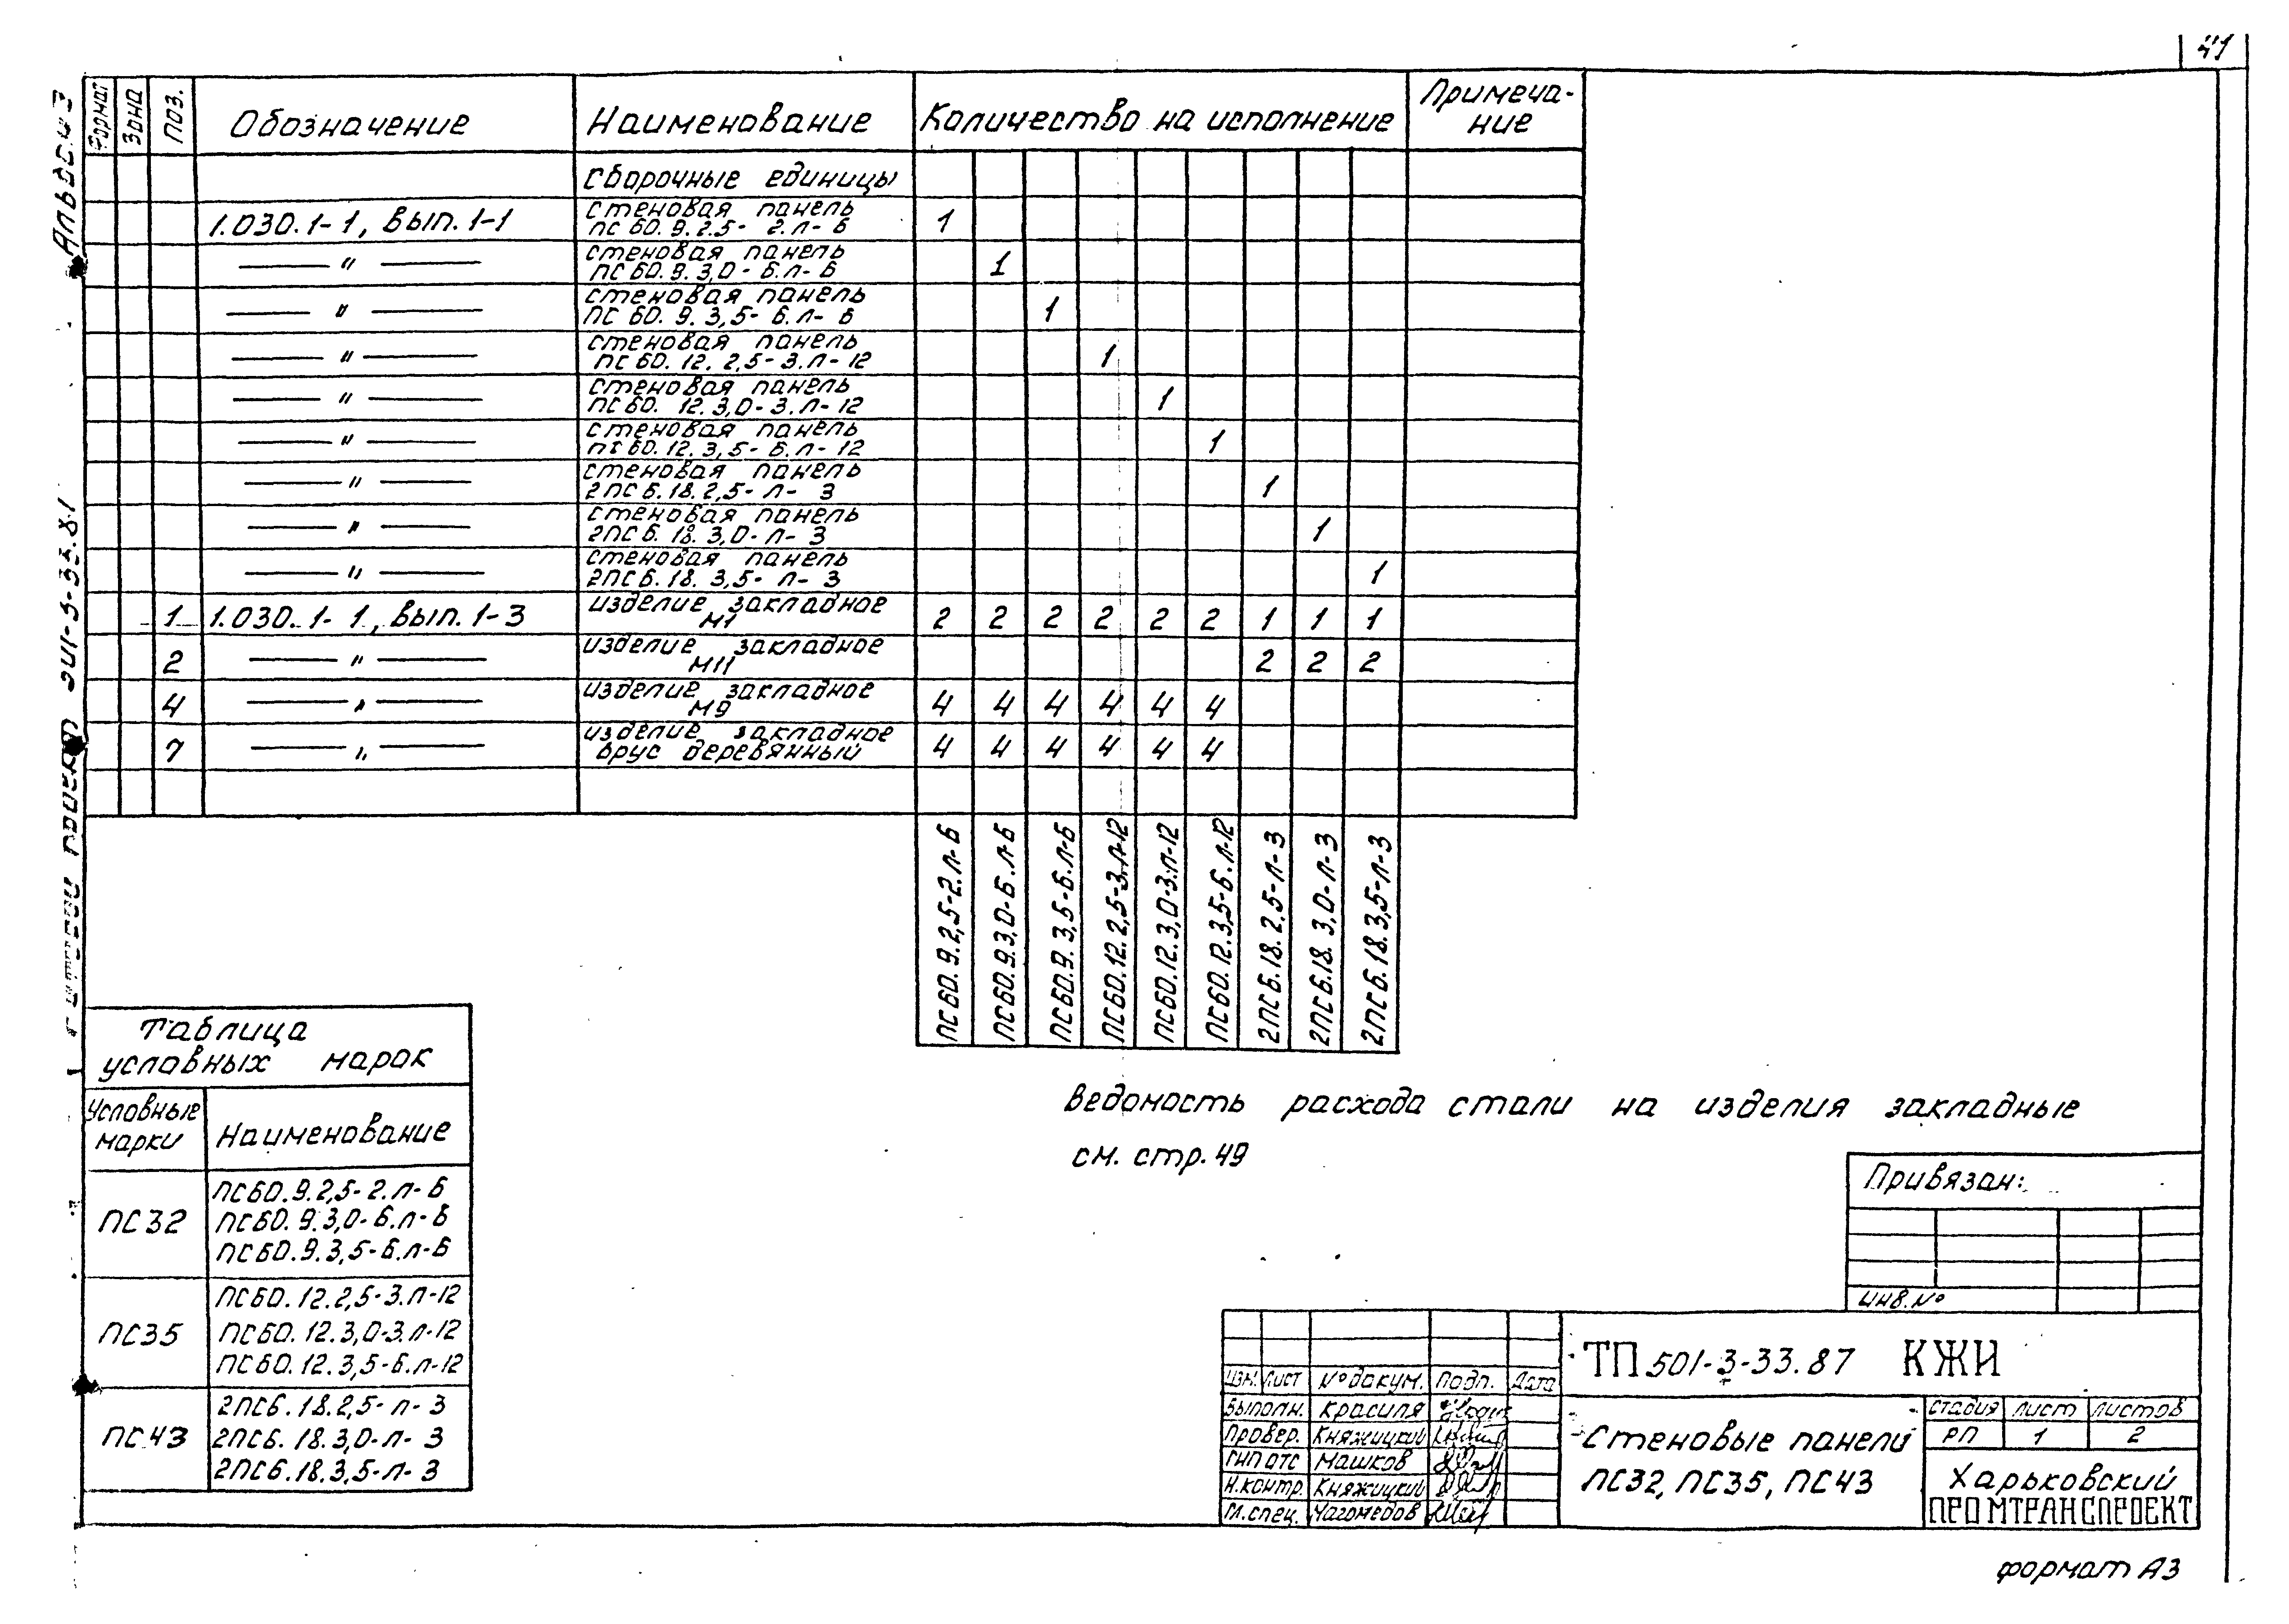 41
Альбом 3
Типовой проект 501-3-33.87
Формат
Зона
Поз.
Обозначение
Наименование
Количество на исполнение
Примеча-
ние
Сборочные единицы
1.030.1-1, вып. 1-1
стеновая панель
ПС 60. 9. 2.5- 2.л- 6
1
— " —
стеновая панель
ПС 60. 9. 3,0- 6.л- 6
1
— " —
стеновая панель
ПС 60. 9. 3,5- 6.л- 6
1
— " —
стеновая панель
ПС 60. 12. 2,5- 3.л- 12
1
— " —
стеновая панель
ПС 60. 12. 3,0- 3.л- 12
1
— " —
стеновая панель
ПС 60. 12. 3,5- 6.л- 12
1
— " —
стеновая панель
2ПС 6. 18. 2,5- л- 3
1
— " —
стеновая панель
2ПС 6. 18. 3,0- л- 3
1
— " —
стеновая панель
2ПС 6. 18. 3,5- л- 3
1
1 1.030.1-1, вып. 1-3
изделие закладное
М1
2 2 2 2 2 2 1 1 1
2 — " —
изделие закладное
М11
2 2 2
4 — " —
изделие закладное
М9
4 4 4 4 4 4
7 — " —
изделие закладное
брус деревянный
4 4 4 4 4 4
ПС60.9.2,5-2.л-6
ПС60.9.3,0-6.л-6
ПС60.9.3,5-6.л-6
ПС60.12.2,5-3.л-12
ПС60.12.3,0-3.л-12
ПС60.12.3,5-6.л-12
2ПС6.18.2,5-л-3
2ПС6.18.3,0-л-3
2ПС6.18.3,5-л-3
Таблица
условных марок
Условные
марки
Наименование
ПС32
ПС60.9.2,5-2.л-6
ПС60.9.3,0-6.л-6
ПС60.9.3,5-6.л-6
ПС35
ПС60.12.2,5-3.л-12
ПС60.12.3,0-3.л-12
ПС60.12.3,5-6.л-12
ПС43
2ПС6.18.2,5-л-3
2ПС6.18.3,0-л-3
2ПС6.18.3,5-л-3
Ведомость расхода стали на изделия закладные
см. стр. 49
Привязан:
Инв. №
Изм. Лист № докум. Подп. Дата
Выполн. Красиля
Провер. Княжицкий
ГИП отс Машков
Н.контр. Княжицкий
Гл.спец. Чагомедов
ТП 501-3-33.87 КЖИ
Стеновые панели
ПС32, ПС35, ПС43
стадия лист листов
РП 1 2
Харьковский
ПРОМТРАНСПРОЕКТ
формат А3